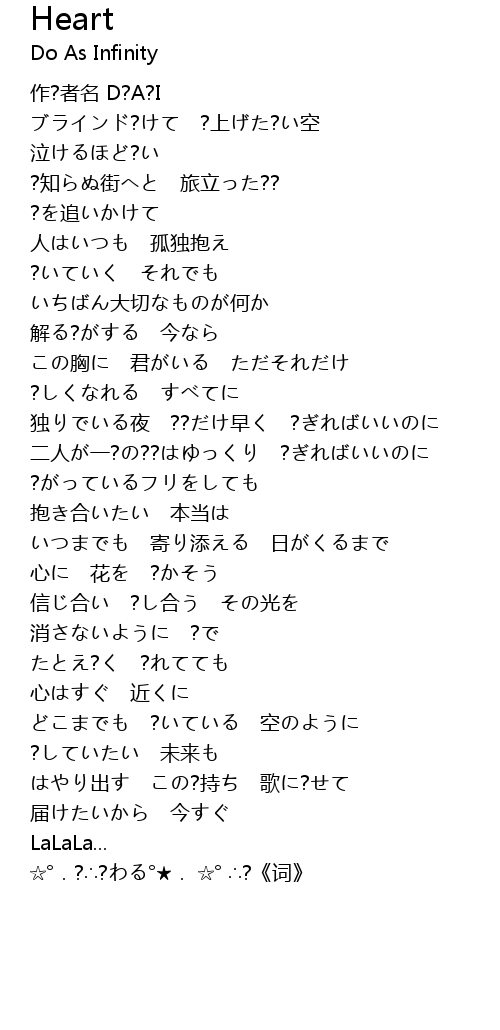 Heart
Do As Infinity
作?者名 D?A?I
ブラインド?けて　?上げた?い空
泣けるほど?い
?知らぬ街へと　旅立った??
?を追いかけて
人はいつも　孤独抱え
?いていく　それでも
いちばん大切なものが何か
解る?がする　今なら
この胸に　君がいる　ただそれだけ
?しくなれる　すべてに
独りでいる夜　??だけ早く　?ぎればいいのに
二人が一?の??はゆっくり　?ぎればいいのに
?がっているフリをしても
抱き合いたい　本当は
いつまでも　寄り添える　日がくるまで
心に　花を　?かそう
信じ合い　?し合う　その光を
消さないように　?で
たとえ?く　?れてても
心はすぐ　近くに
どこまでも　?いている　空のように
?していたい　未来も
はやり出す　この?持ち　歌に?せて
届けたいから　今すぐ
LaLaLa...
☆°．?∴?わる°★． ☆° ∴?《词》